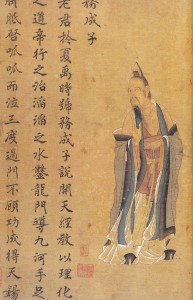 務成子
老君於夏禹時號務成子說開天經教以理化
之道帝行之治滔滔之水鑿龍門導九河手足
胼胝啓呱呱而泣三度過門不顧功成得天錫